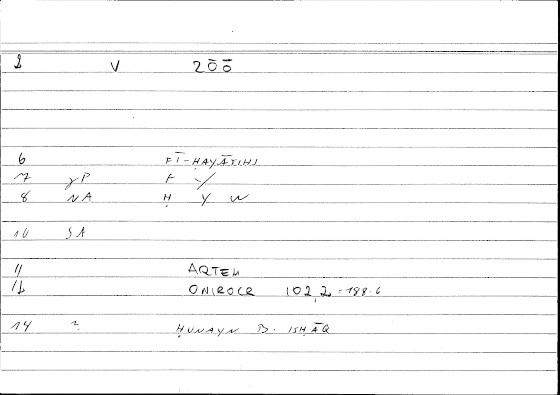 2 V 2ŌŌ
6 FĪ-ḤAYĀTIHI
7 γP F Y
8 NA Ḥ Y W
10 SA
11 ARTEM
12 ONIROCR 102,2 = 188.6
14 ? ḤUNAYN B. ISḤĀQ